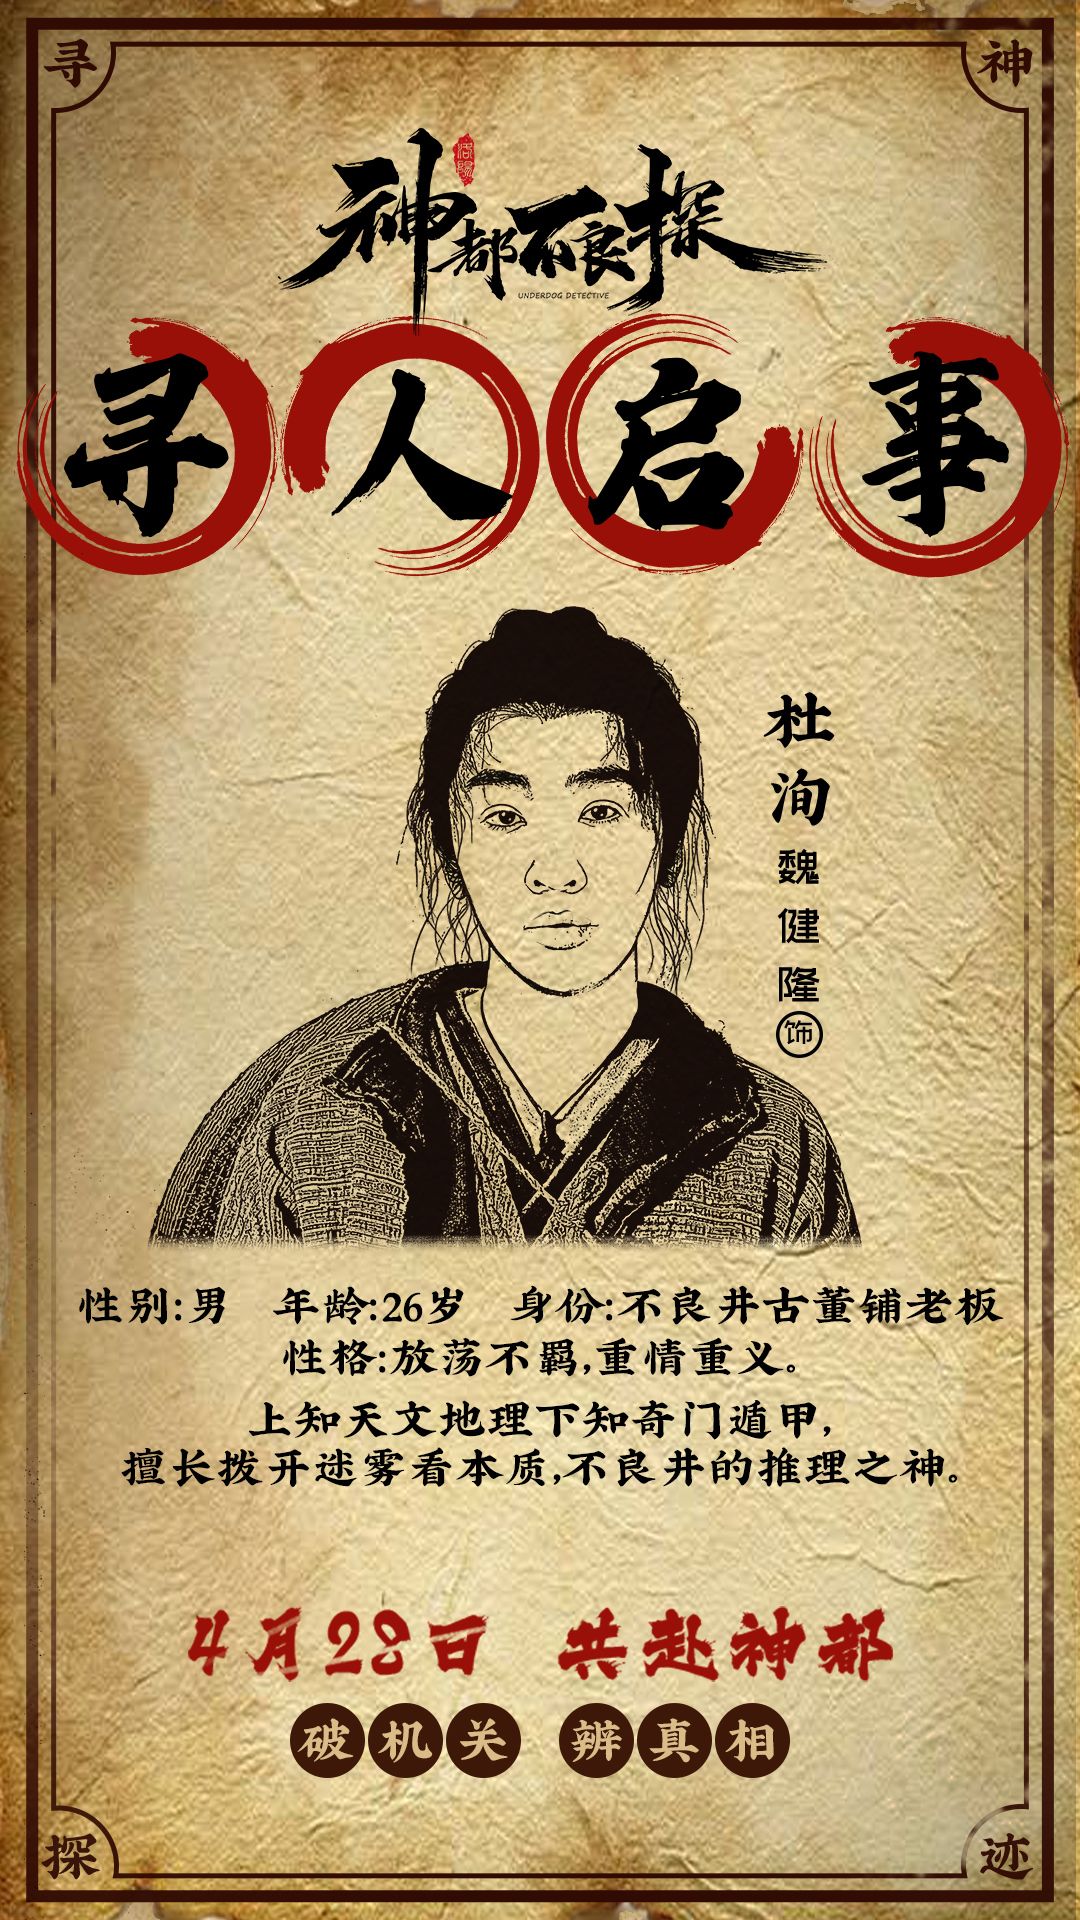 寻
神
神都不良探
洛陽
UNDERDOG DETECTIVE
寻人启事
杜洵
魏健隆饰
性别:男 年龄:26岁 身份:不良井古董铺老板
性格:放荡不羁,重情重义。
上知天文地理下知奇门遁甲,
擅长拨开迷雾看本质,不良井的推理之神。
4月28日 共赴神都
破机关 辨真相
探
迹